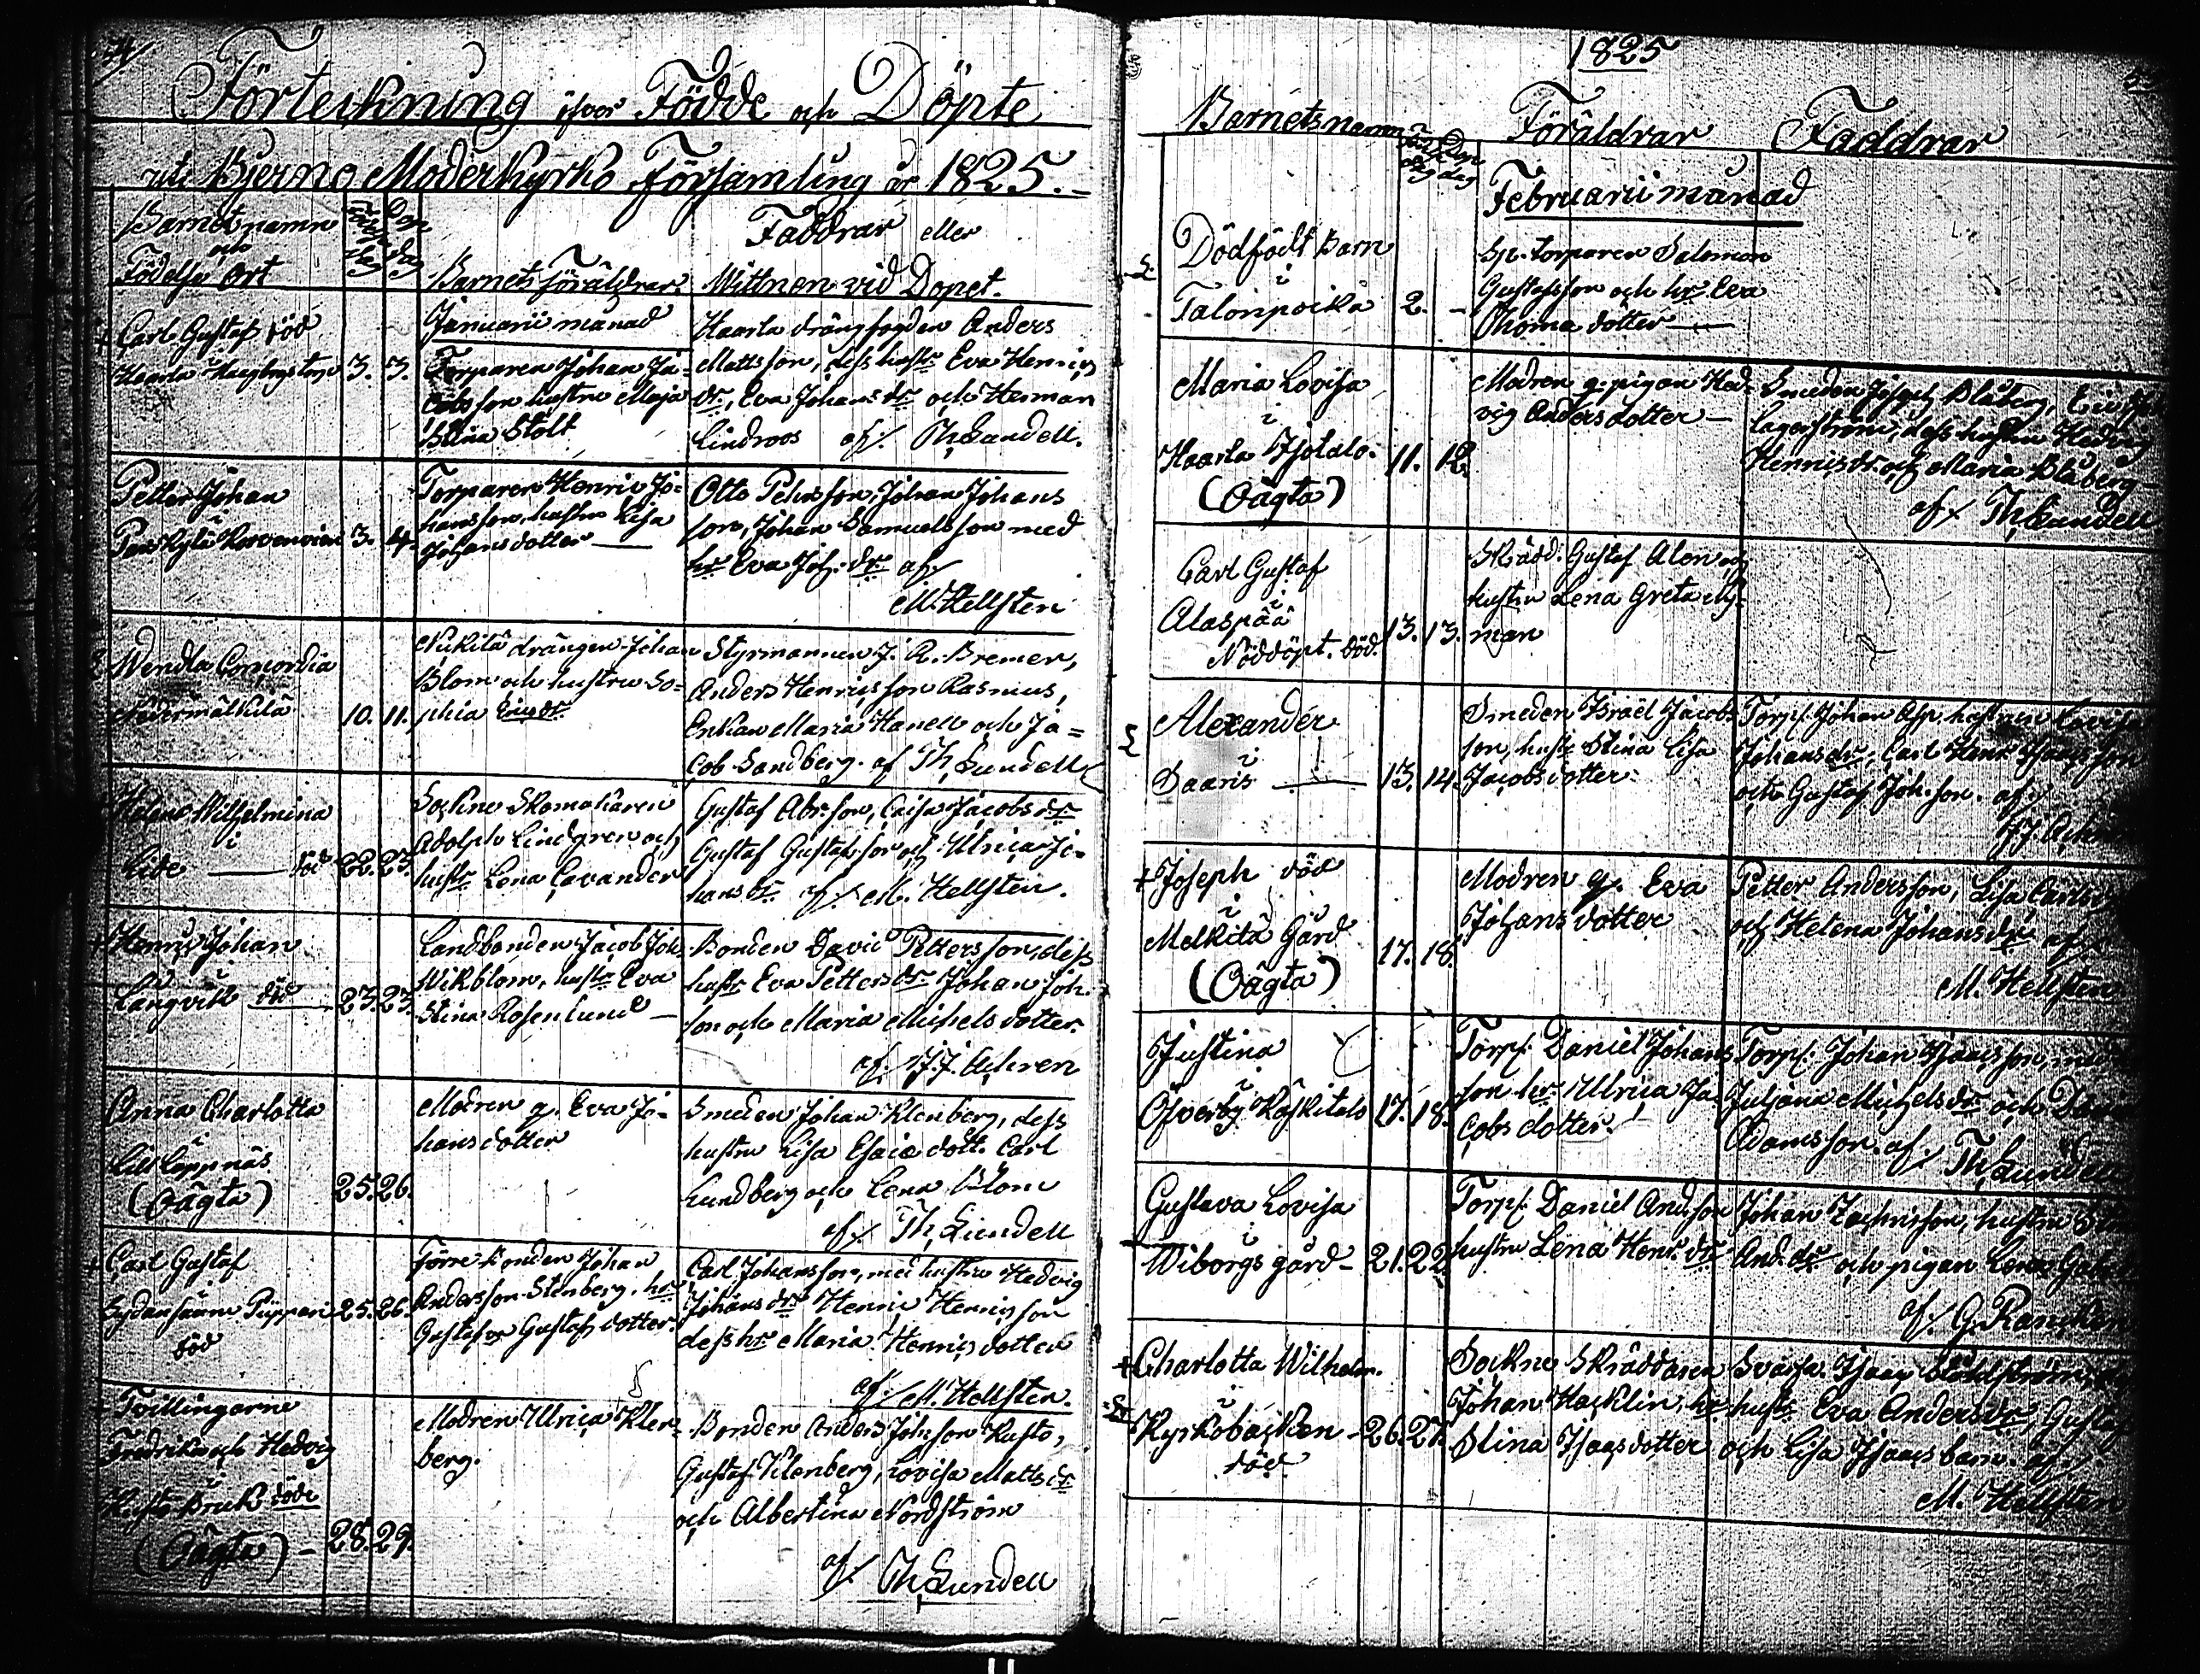 54/
Förteckning öfver Födde och Döpte
uti Bjerno Moderkyrko Församling år 1825.
Barnets namn
och
Födelse Ort
Födelse dag
Dop dag
Barnets föräldrar
Faddrar eller
Wittnen vid Dopet.
Januarii månad
Carl Gustaf död
Haarla
3. 3.
Torparen Johan Ja=
cobsson hustru Maja
Stina Stolt
Haarla drängfogden Anders
Mattsson, dess hustr Eva Henrics
dr, Eva Johans dr och Herman
Lindroos af/. Th Lundell.
Petter Johan
i
3. 4.
Torparen Henric Jo=
hansson, hustru Lisa
Johans dotter —
Otto Pehrsson, Johan Johans
son, Johan Samuelsson med
hr Eva Joh. dr af/
M. Hellsten
Wendla Concordia
i
10. 11.
Nukitä drängen Johan
Blom och hustru So=
phia Erics dr
Styrmannen J. A. Bremer,
Anders Henricsson Rasmus,
Enkan Maria Hanell och Ja=
cob Sandberg. af Th Lundell
Helena Wilhelmina
i
Lide — död 22. 23.
Sockne Skomakaren
Adolph Lindgren och
hustr Lena Cavander
Gustaf Abr. son, Caisa Jacobs dr
Gustaf Gustafsson och Ulrica Jo=
hans dr af/. M. Hellsten.
Henric Johan
i
Långvik död 23. 23.
Landbonden Jacob Joh.
Wikblom, hustr Eva
Stina Rosenlund —
Bonden David Pettersson, dess
hustr Eva Petters dr Johan Joh.
son och Maria Michels dotter.
af/. J. J. Achren
Anna Charlotta
i
Lill Lappnäs
(Oägta) 25. 26.
Modren q. Eva Jo=
hans dotter
Smeden Johan Klenberg, dess
hustru Lisa Esaiæ dott. Carl
Lundberg och Lena Blom
af/. Th Lundell
Carl Gustaf
i
25. 26.
död
Andersson Stenberg, hr
Gustafva Gustafs dotter.
Carl Johansson, med hustru Hedvig
Johans dr Henric Henricsson
dess hr Maria Henrics dotter
af/. M. Hellsten.
Tvillingarne
Fredrika och Hedvig
i
Kustö Bruk döde
(Oägta) — 28. 29.
Modren Ulrica Klen=
berg.
Bonden Anders Johnson Kusto,
Gustaf Vilenberg, Lovisa Matts dr
och Albertina Nordström
af/. Th Lundell
1825
Barnets namn
Födelse dag
Dop dag
Föräldrar
Faddrar
Februarii månad
Dödfödt Barn
i
Talonpoika 2. —
Sp. torparen Salomon
Gustafsson och hr Eva
Thomæ dotter —
Maria Lovisa
i
Haarla Isotalo. 11. 12.
(Oägta)
Modren q. pigan Hed=
vig Anders dotter —
Smeden Joseph Blåberg,
Lagerström, dess hustru Hedvig
Henrics dr och Maria Blåberg —
af/. Th Lundell
Carl Gustaf
i
Alaspää 13. 13.
Nöddöpt. död.
Skrädd. Gustaf Alen och
hustru Lena Greta Ny=
man
Alexander
i
Saaris — 13. 14.
Smeden Israël Jacobs
son, hustr Stina Lisa
Jacobs dotter.
Torp/. Johan
Johans dr, Carl Henr. Isaacsson
och Gustaf Joh. son. af/.
J. J. Achren
Joseph död
i
Melkitä Gård 17. 18.
(Oägta)
Modren q. Eva
Johans dotter
Petter Andersson, Lisa Carls
och Helena Johans dr af/.
M. Hellsten
Justina
i
Öfverby Koskitalo 17. 18.
Torp/. Daniel Johans
son hr Ulrica Ja
cobs dotter.
Torp/. Johan Isaacsson, med
Juliana Michels dr och
Adamsson. af/. Th Lundell
Gustava Lovisa
i
Wiborgs gård — 21. 22.
Torp/. Daniel And. son
hustru Lena Henr. dr
Johan Zachrisson, hustru
And. dr och pigan Lena
af/. G. Rancken
Charlotta Wilhelm.
i
Kyrkobacken — 26. 27.
död
Sockne Skräddaren
Johan Hacklin, hr
Stina Isaacs dotter
Isaac
hustr Eva Anders dr, Gustaf
och Lisa Isaacs barn. af/.
M. Hellsten